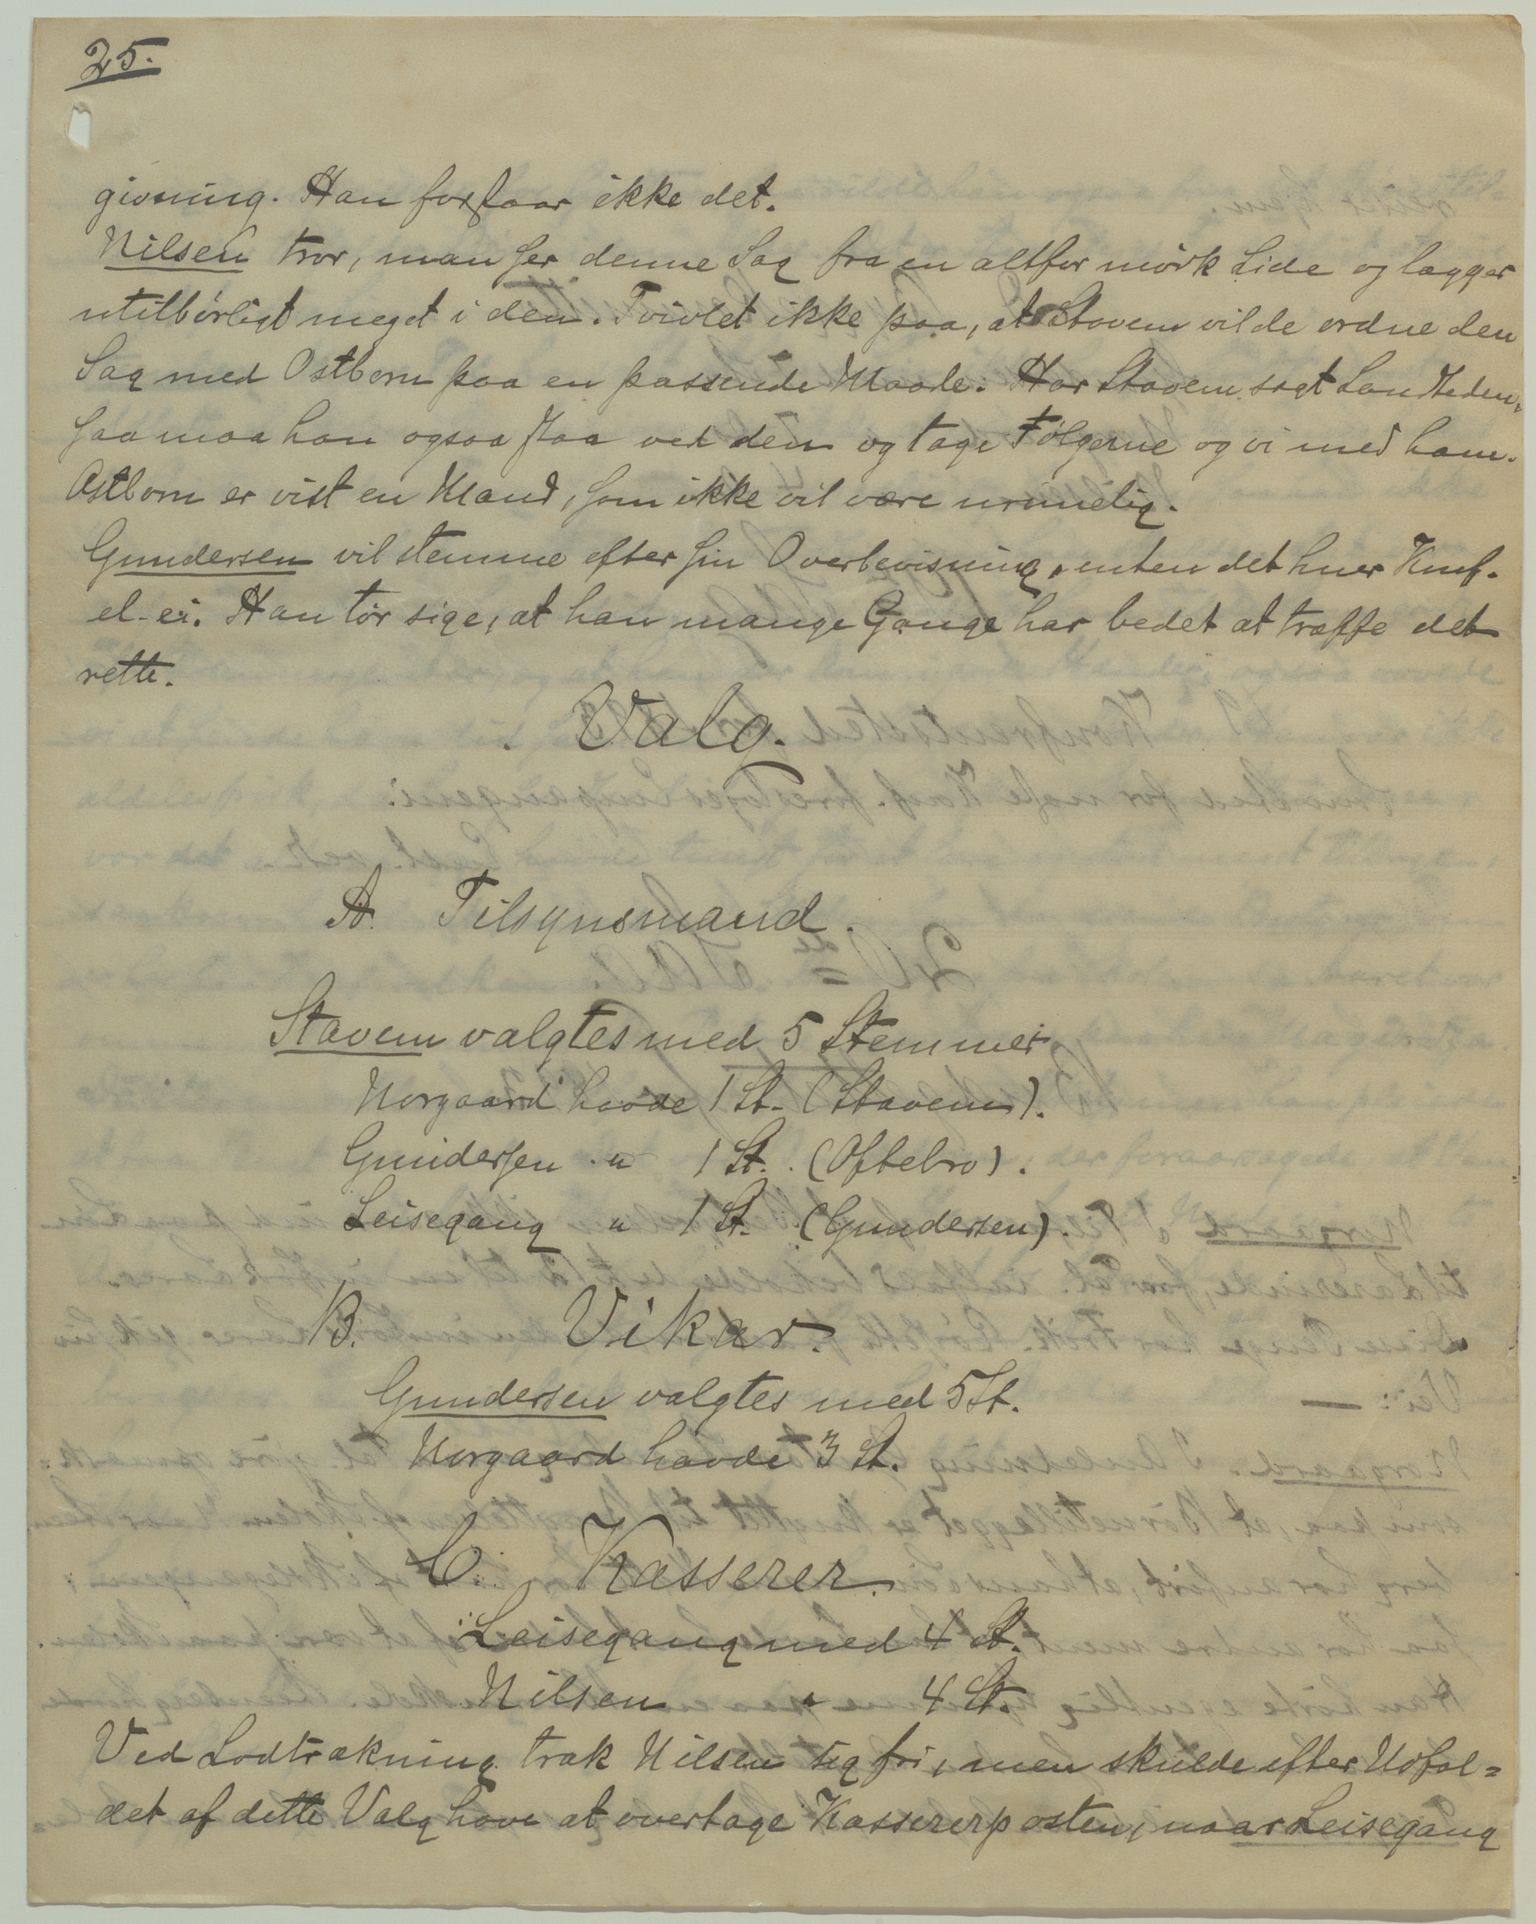 25.
givning. Han forstaar ikke det.
Nilsen tror, man ser denne Sag fra en altfor mørk Side og lægger
utilbørligt meget i den. Tvivlet ikke paa, at Stavem vilde ordne den
Sag med Ostbom paa en passende Maade. Har Stavem sagt Sandheden,
saa maa han ogsaa staa ved den og tage Følgerne og vi med ham.
Astbom er vist en Mand, som ikke vil være urimelig.
Gundersen vil stemme efter sin Overbevisning, enten det huer Konf.
el. ei. Han tør sige, at han mange Gange har bedet at træffe det
rette.
Valg.
A. Tilsynsmand.
Stavem valgtes med 5 Stemmer
Norgaard havde 1 St. (Stavem).
Gundersen " 1 St. (Oftebro).
Leisegang " 1 St. (Gundersen).
B. Vikar.
Gundersen valgtes med 5 St.
Norgaard havde 3 St.
C. Kasserer.
Leisegang med 4 St.
Nilsen " 4 St.
Ved Lodtrækning trak Nilsen sig fri, men skulde efter Udfal=
det af dette Valg have at overtage Kassererposten, naar Leisegang